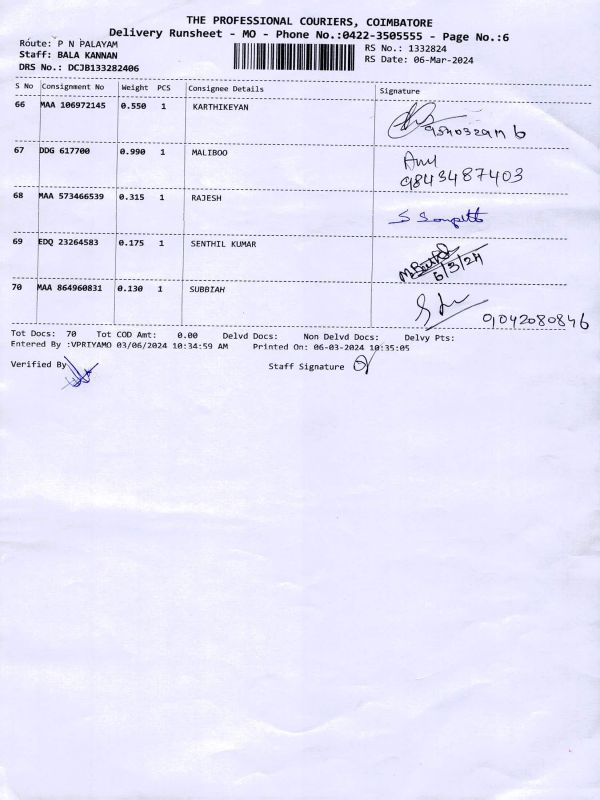 THE PROFESSIONAL COURIERS, COIMBATORE
Delivery Runsheet - MO - Phone No.:0422-3505555 - Page No.:6
Route: P N PALAYAM
Staff: BALA KANNAN
DRS No.: DCJB133282406
RS No.: 1332824
RS Date: 06-Mar-2024
S No Consignment No Weight PCS Consignee Details Signature
66 MAA 106972145 0.550 1 KARTHIKEYAN
67 DDG 617700 0.990 1 MALIBOO
9843487403
68 MAA 573466539 0.315 1 RAJESH
69 EDQ 23264583 0.175 1 SENTHIL KUMAR
6/3/24
70 MAA 864960831 0.130 1 SUBBIAH
9042080846
Tot Docs: 70 Tot COD Amt: 0.00 Delvd Docs: Non Delvd Docs: Delvy Pts:
Entered By :VPRIYAMO 03/06/2024 10:34:59 AM Printed On: 06-03-2024 10:35:05
Verified By Staff Signature